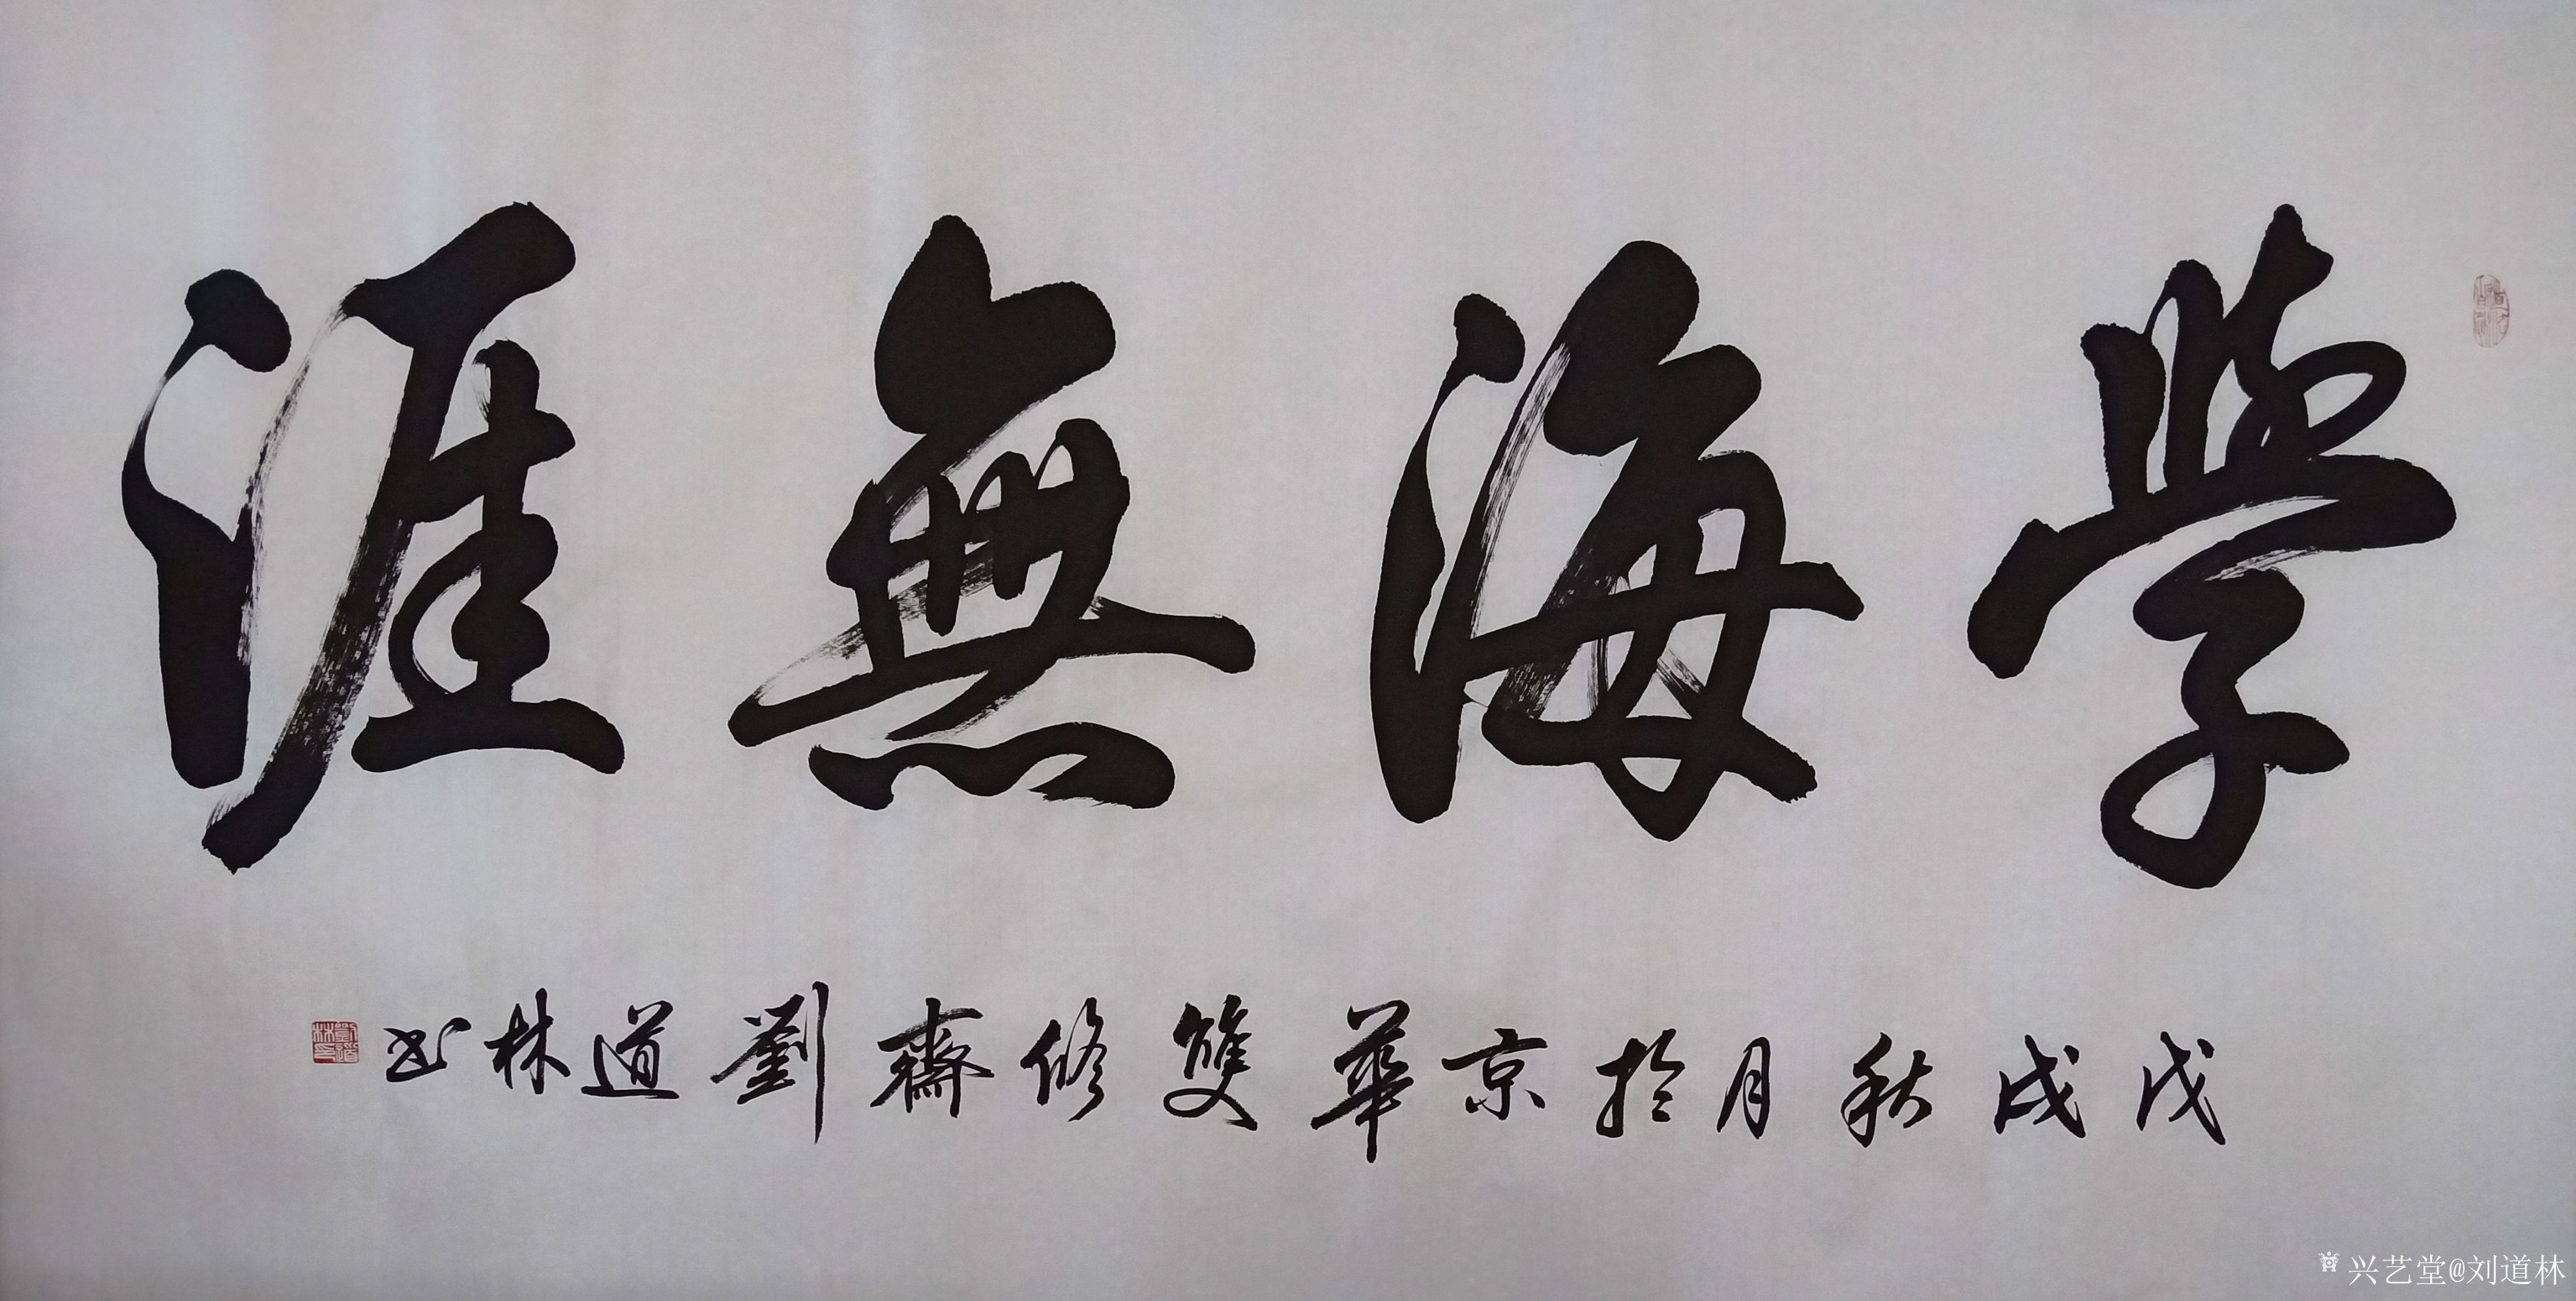 學海無涯
戊戌秋月於京華雙修齋劉道林书
劉道林印
兴艺堂@刘道林